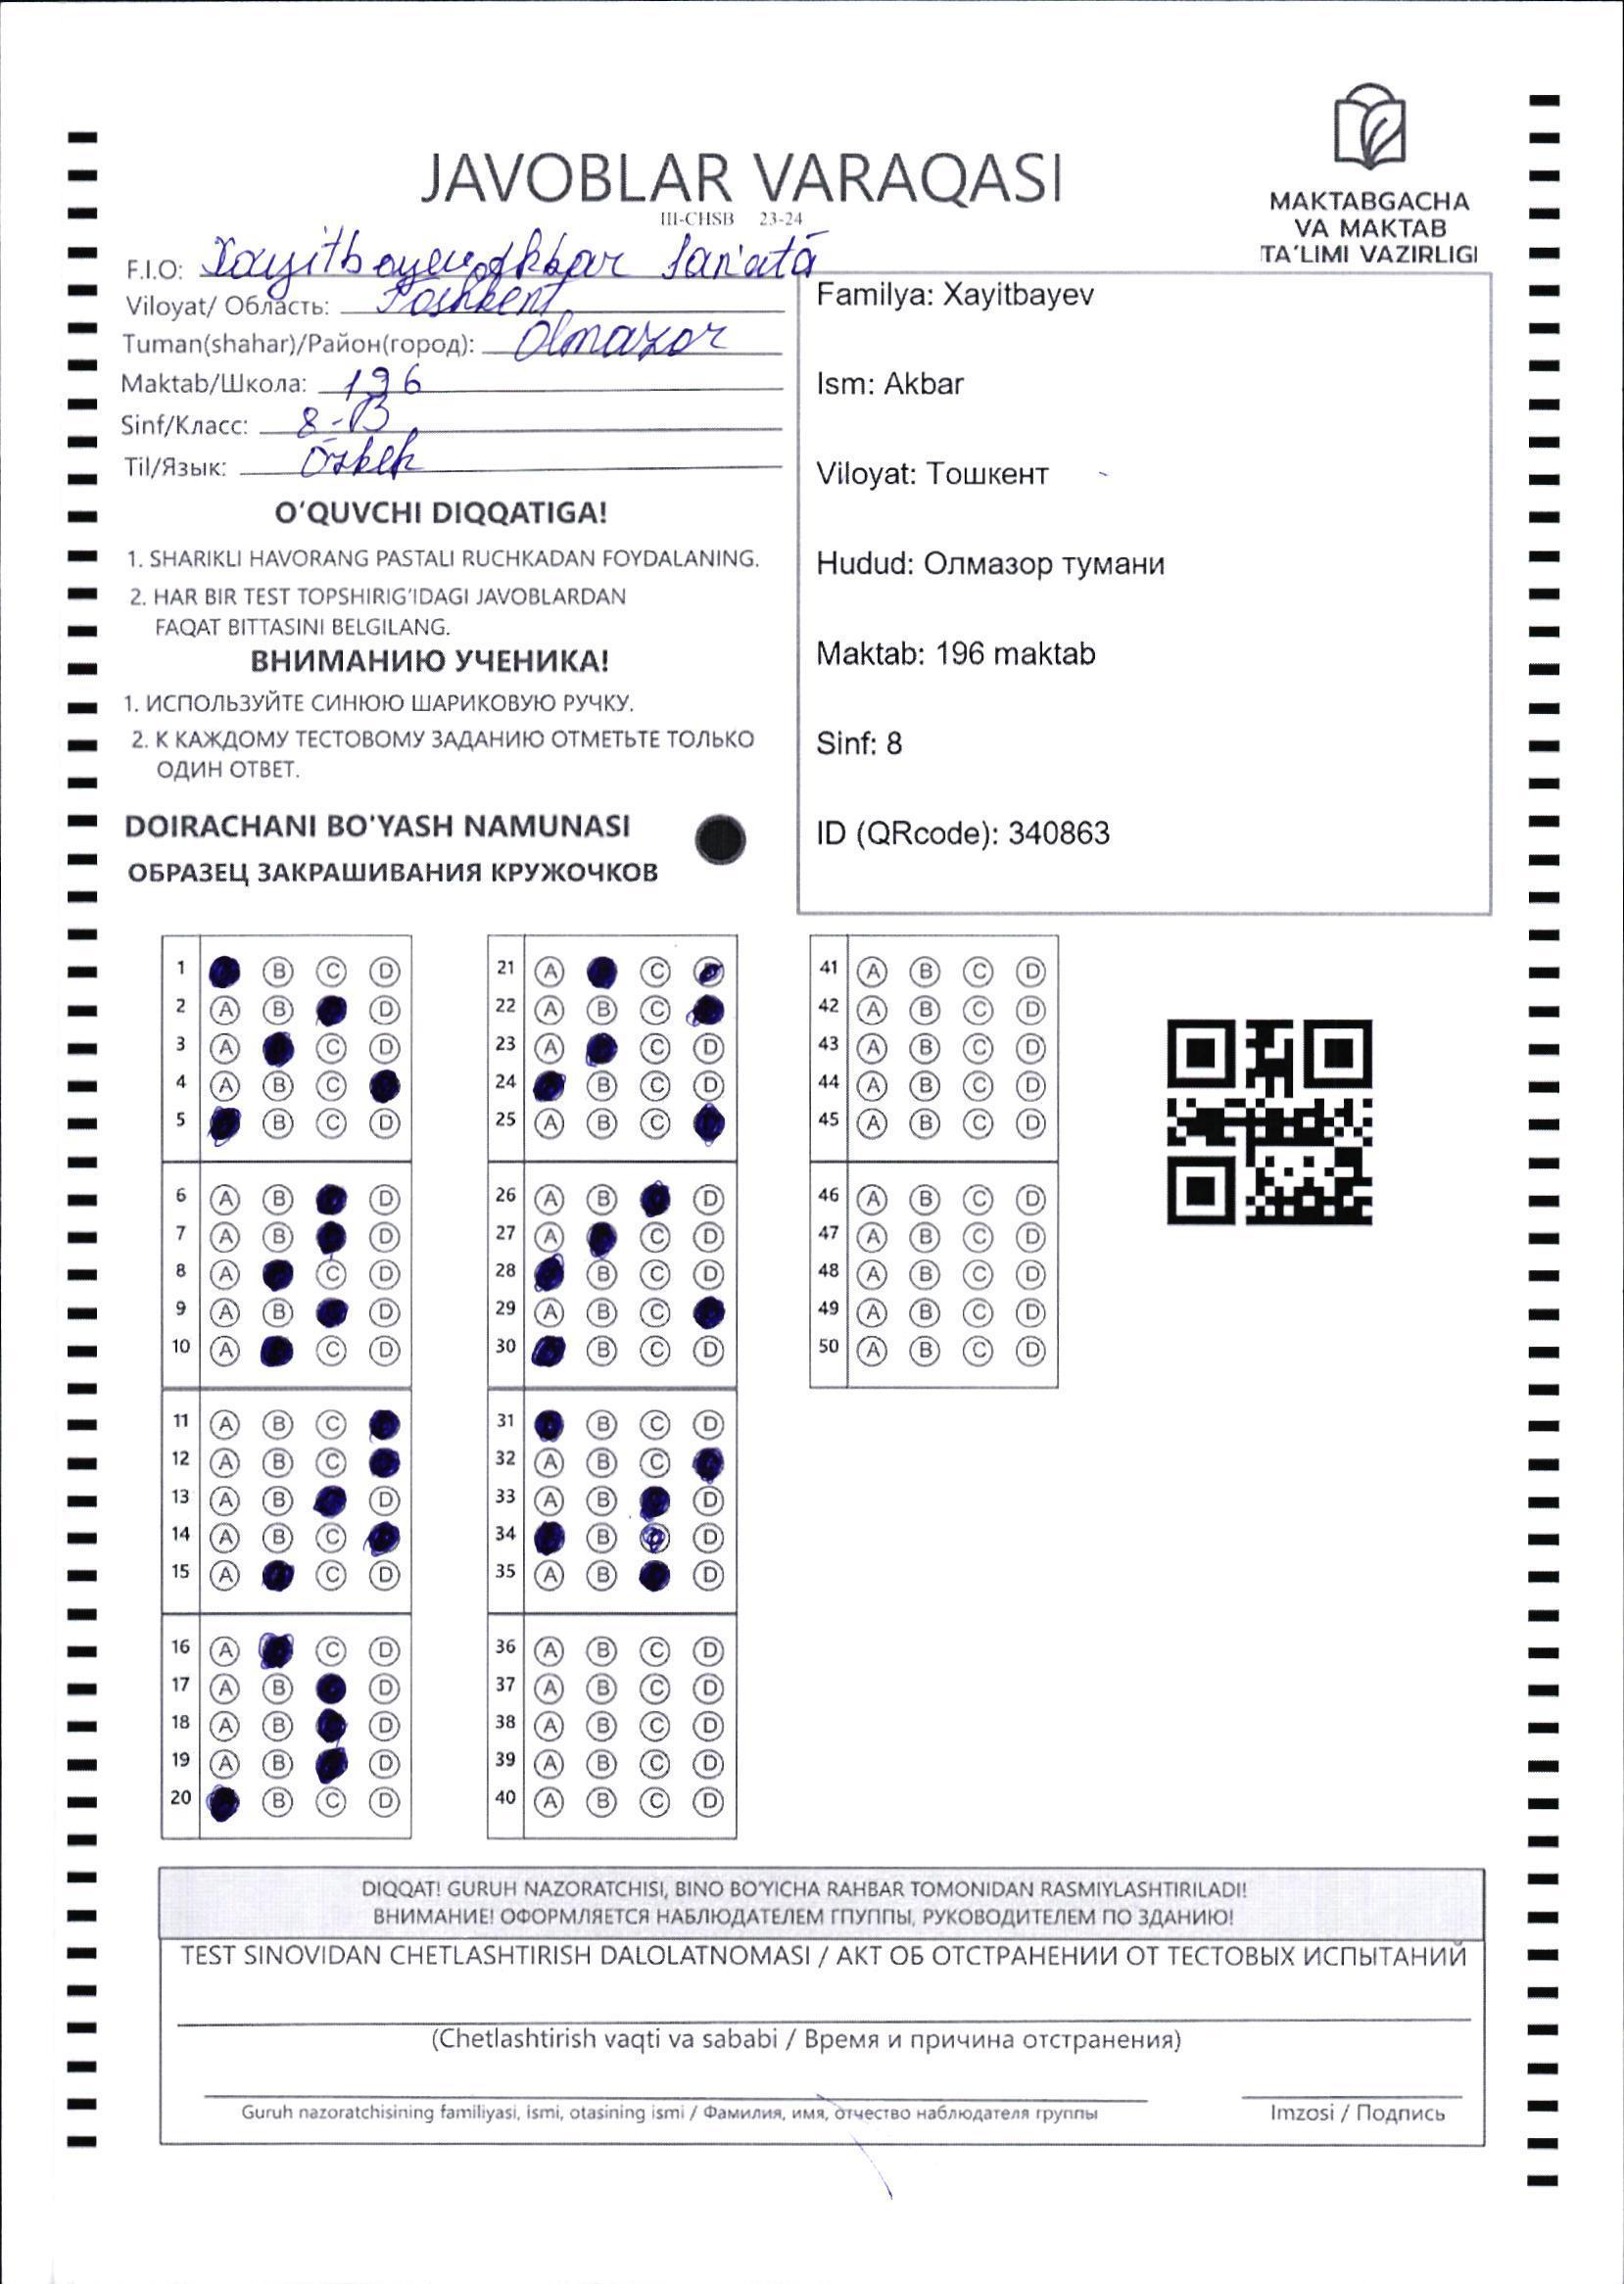 JAVOBLAR VARAQASI
III-CHSB 23-24
MAKTABGACHA
VA MAKTAB
TA'LIMI VAZIRLIGI
F.I.O: Xayitboyev Akbar San'at
Viloyat/ Область: Toshkent
Tuman(shahar)/Район(город): Olmazor
Maktab/Школа: 196
Sinf/Класс: 8-B
Til/Язык: O'zbek
O'QUVCHI DIQQATIGA!
1. SHARIKLI HAVORANG PASTALI RUCHKADAN FOYDALANING.
2. HAR BIR TEST TOPSHIRIG'IDAGI JAVOBLARDAN
FAQAT BITTASINI BELGILANG.
ВНИМАНИЮ УЧЕНИКА!
1. ИСПОЛЬЗУЙТЕ СИНЮЮ ШАРИКОВУЮ РУЧКУ.
2. К КАЖДОМУ ТЕСТОВОМУ ЗАДАНИЮ ОТМЕТЬТЕ ТОЛЬКО
ОДИН ОТВЕТ.
DOIRACHANI BO'YASH NAMUNASI
ОБРАЗЕЦ ЗАКРАШИВАНИЯ КРУЖОЧКОВ
Familya: Xayitbayev
Ism: Akbar
Viloyat: Тошкент
Hudud: Олмазор тумани
Maktab: 196 maktab
Sinf: 8
ID (QRcode): 340863
1 B C D
2 A B D
3 A C D
4 A B C
5 B C D
6 A B D
7 A B D
8 A C D
9 A B D
10 A C D
11 A B C
12 A B C
13 A B D
14 A B C
15 A C D
16 A C D
17 A B D
18 A B D
19 A B D
20 B C D
21 A C
22 A B C
23 A C D
24 B C D
25 A B C
26 A B D
27 A C D
28 B C D
29 A B C
30 B C D
31 B C D
32 A B C
33 A B D
34 B D
35 A B D
36 A B C D
37 A B C D
38 A B C D
39 A B C D
40 A B C D
41 A B C D
42 A B C D
43 A B C D
44 A B C D
45 A B C D
46 A B C D
47 A B C D
48 A B C D
49 A B C D
50 A B C D
DIQQAT! GURUH NAZORATCHISI, BINO BO'YICHA RAHBAR TOMONIDAN RASMIYLASHTIRILADI!
ВНИМАНИЕ! ОФОРМЛЯЕТСЯ НАБЛЮДАТЕЛЕМ ГПУППЫ, РУКОВОДИТЕЛЕМ ПО ЗДАНИЮ!
TEST SINOVIDAN CHETLASHTIRISH DALOLATNOMASI / АКТ ОБ ОТСТРАНЕНИИ ОТ ТЕСТОВЫХ ИСПЫТАНИЙ
(Chetlashtirish vaqti va sababi / Время и причина отстранения)
Guruh nazoratchisining familiyasi, ismi, otasining ismi / Фамилия, имя, отчество наблюдателя группы
Imzosi / Подпись